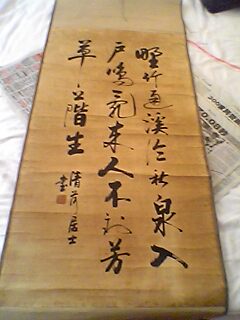 野竹通溪冷秋泉入
戶鳴亂來人不到芳
草上階生
清居士
書